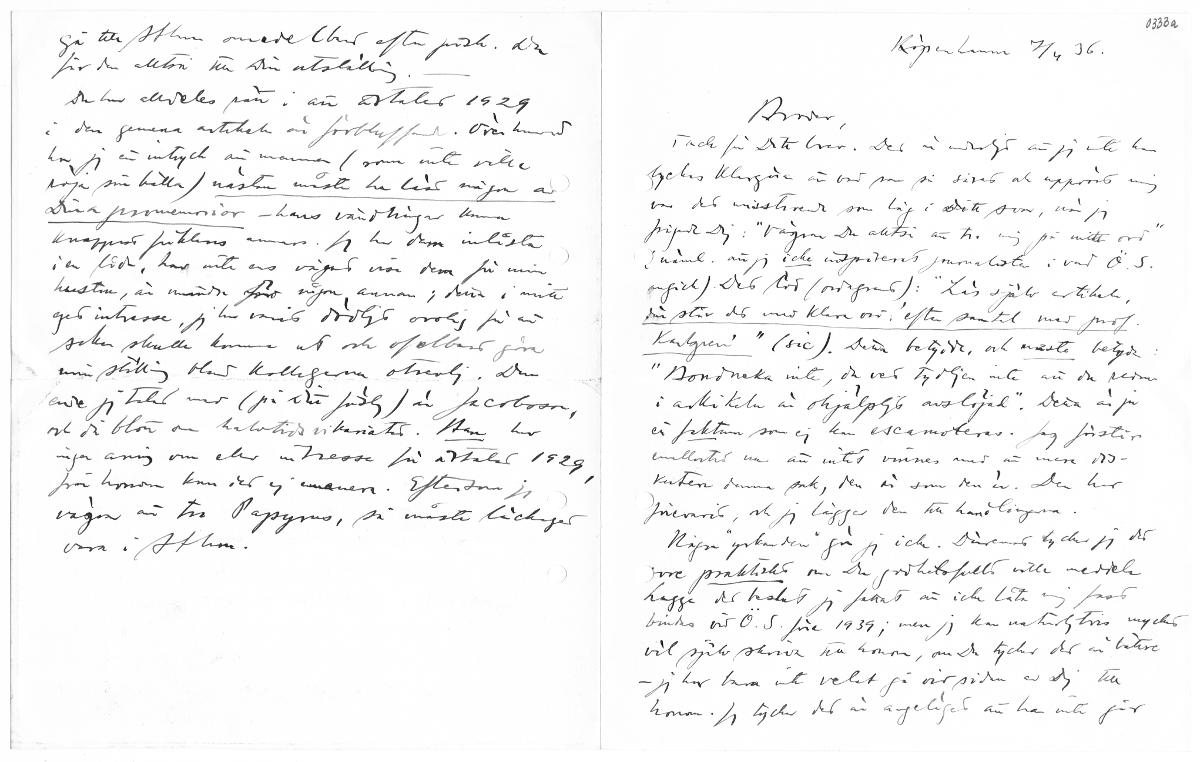 0333a
Köpenhamn 7/4 36.
Broder,
Tack för Ditt brev. Det är märkligt att jag inte kan
lyckas klargöra att vad som så sårat och upprört mig
var det misstroende som låg i Ditt svar, när jag
frågade Dig: "Vägrar Du alltså att tro mig på mitt ord"
(näml. att jag icke inspirerat journalisten i vad Ö. S.
angick). Det löd (ordagrant): "Läs själv artikeln,
där står det med klara ord: 'efter samtal med prof.
Karlgren'" (sic). Detta betydde, och måste betyda:
"Bortneka inte, du ved tydligen inte att du redan
i artikeln är ohjälpligt avslöjad". Detta är ju
ett faktum som ej kan escamoteras. Jag förstår
emellertid nu att intet vinnes med att mera dis-
kutera denna sak, den är som den är. Den har
förevarit, och jag lägger den till handlingarna.
Några "yrkanden" gör jag icke. Däremot tycker jag det
vore praktiskt om Du godhetsfullt ville meddela
Lagge det beslut jag fattat att icke låta mig fast
bindas vid Ö. S. före 1939; men jag kan naturligtvis mycket
väl själv skriva till honom, om Du tycker det är bättre
– jag har bara inte velat gå vid sidan av Dig till
honom. Jag tycker det är angeläget att han inte går
gå till Sthlm omedelbart efter påsk. Den
får den alltså till Din utställning.
Du har alldeles rätt i att årtalet 1929
i den gemena artikeln är förbluffande. Överhuvud
har jag ett intryck att mannen (som inte ville
röja sin källa) nästan måste ha läst någon av
Dina promemorior – hans vändningar kunna
knappast förklaras annars. Jag har dem inlåsta
i en låda, har inte ens vågat visa dem för min
hustru, än mindre för någon annan; detta i mitt
eget intresse, jag har varit dödligt orolig för att
saken skulle komma ut och ofelbart göra
min ställning bland kollegerna otrevlig. Den
ende jag talat med (på Ditt förslag) är Jacobsson,
och då blott om halvtidsvikariatet. Han har
ingen aning om eller intresse för årtalet 1929,
från honom kan det ej emanera. Eftersom jag
vägrar att tro Papyrus, så måste läckaget
vara i Sthlm.